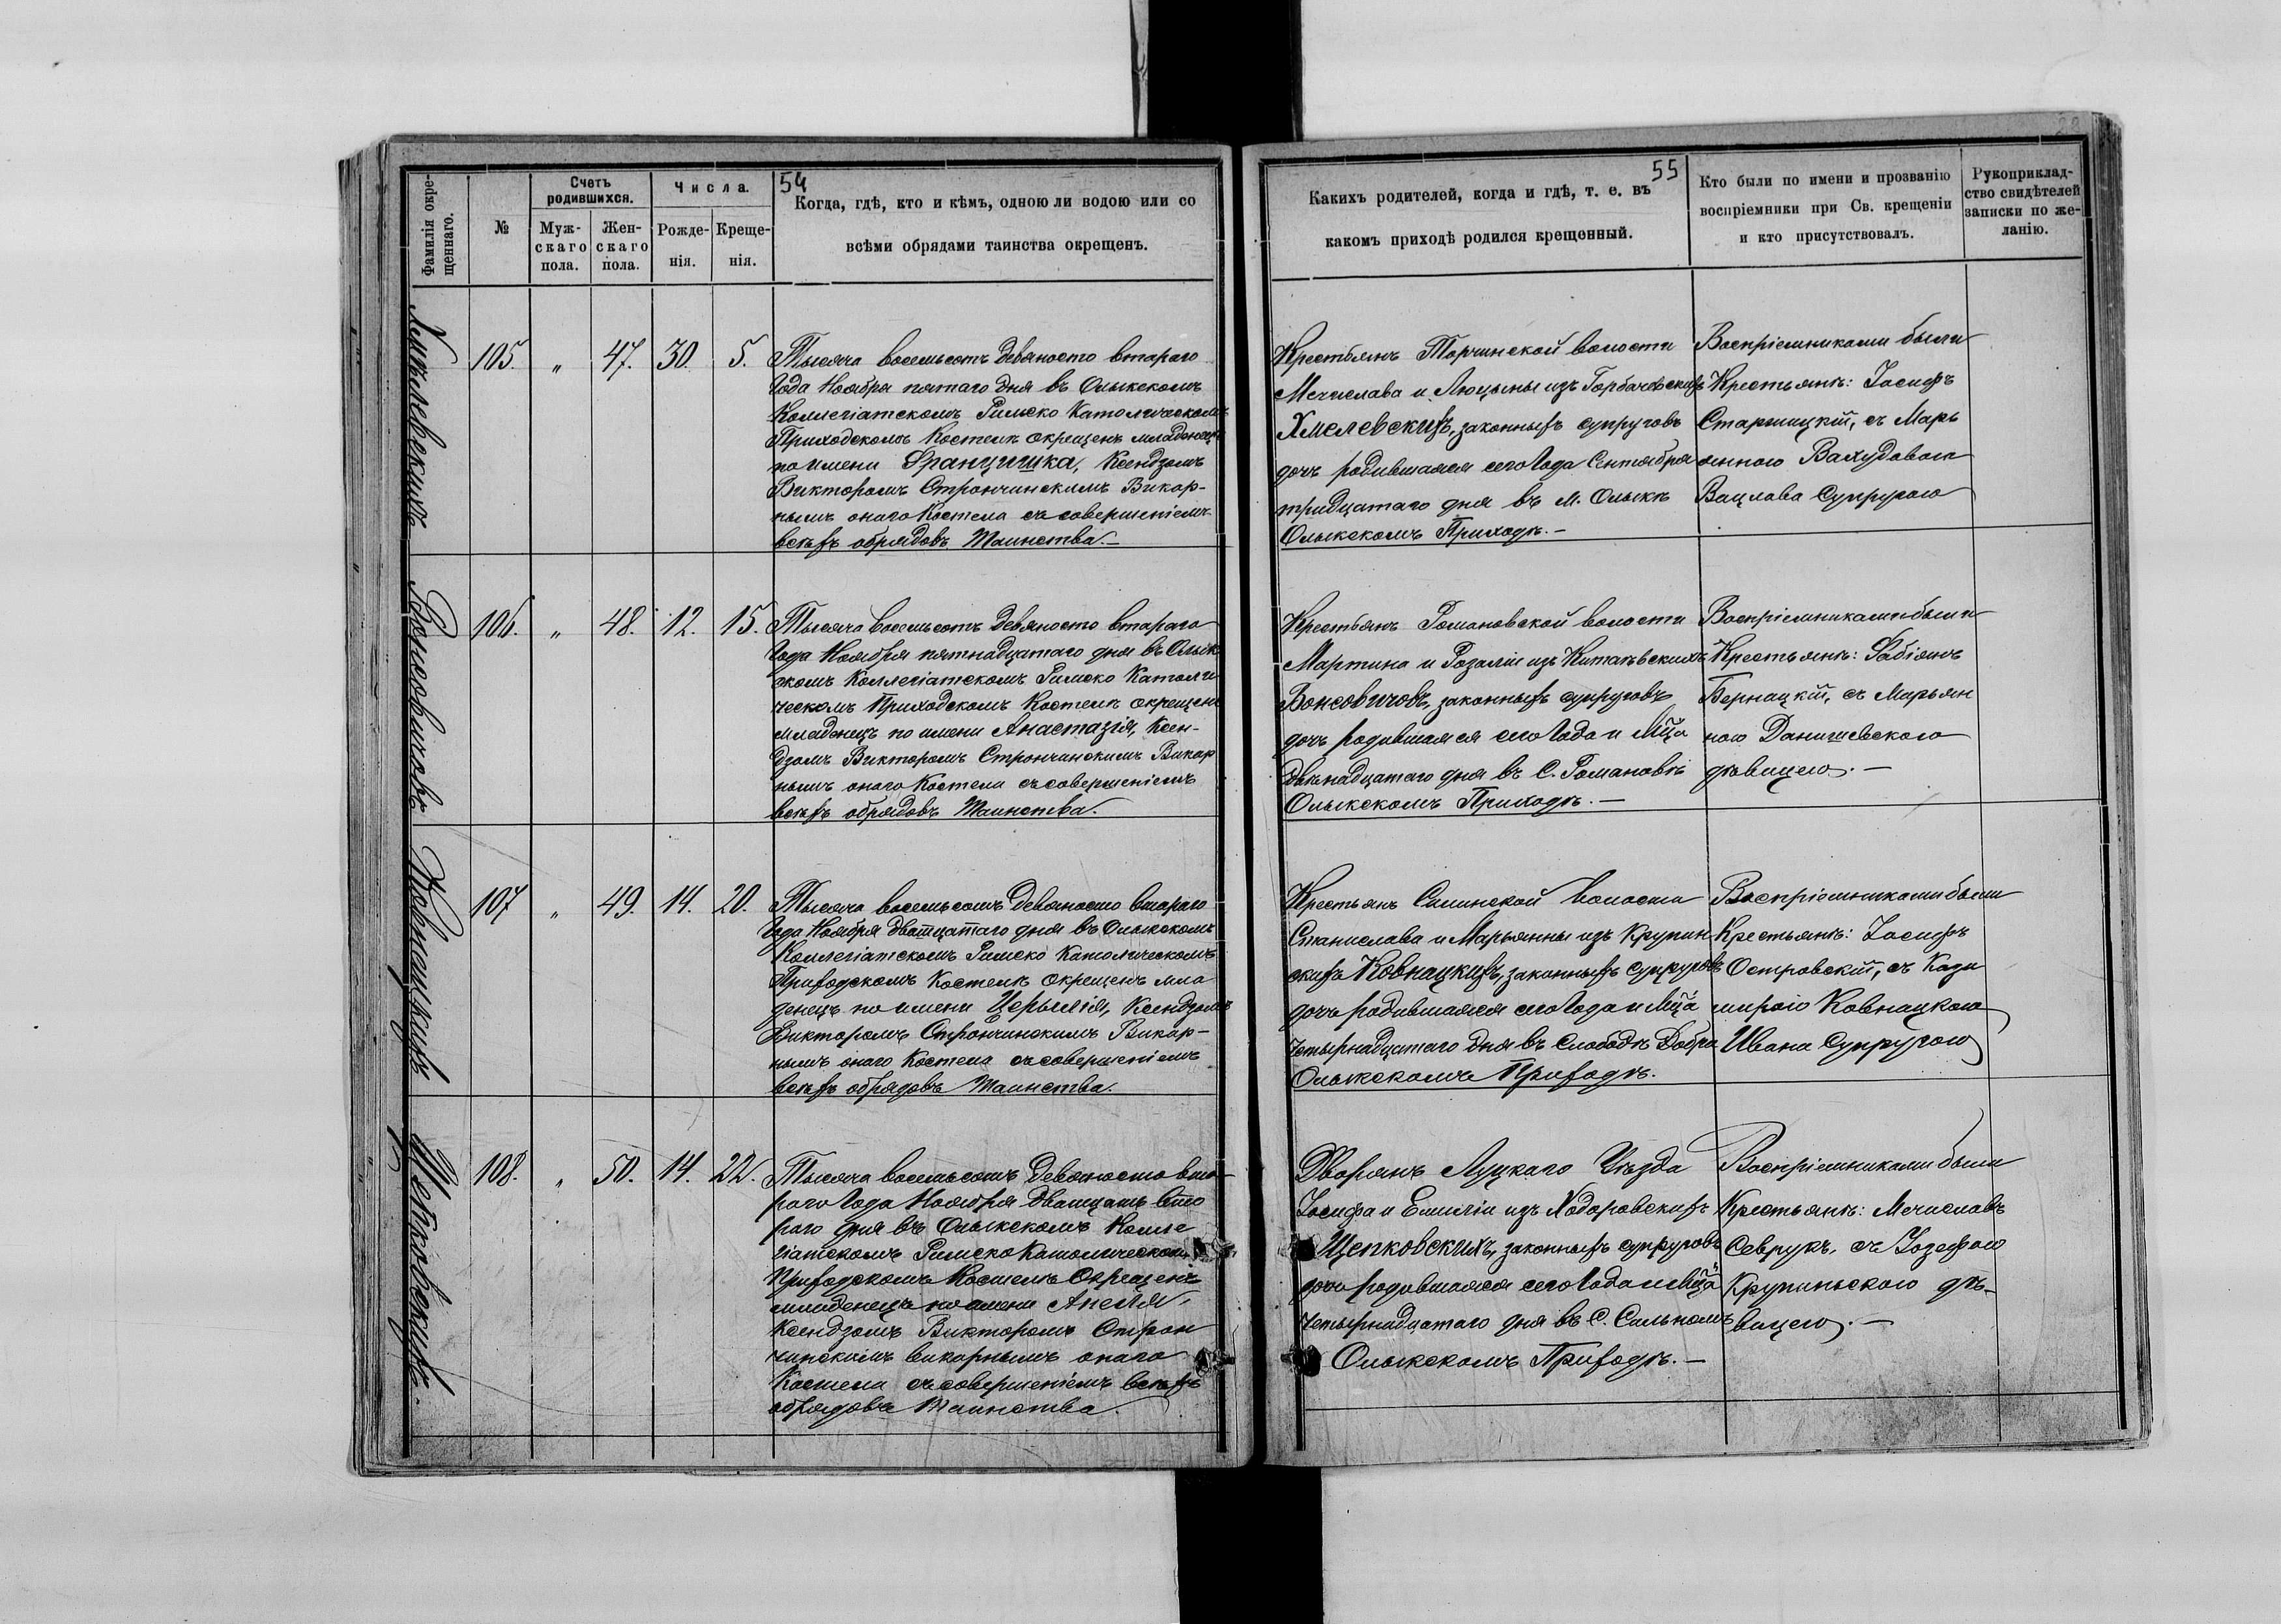 54
Фамилія окре-
щеннаго.
№
Счетъ
родившихся.
Муж-
скаго
пола.
Жен-
скаго
пола.
Числа.
Рожде-
нія.
Креще-
нія.
Когда, гдѣ, кто и кѣмъ, одною ли водою или со
всѣми обрядами таинства окрещенъ.
55
Какихъ родителей, когда и гдѣ, т. е. въ
какомъ приходѣ родился крещенный.
Кто были по имени и прозванію
воспріемники при Св. крещеніи
и кто присутствовалъ.
Рукоприклад-
ство свидѣтелей
записки по же-
ланію.
Хмѣлевскихъ
105. " 47. 30. 5.
Тысяча восемьсотъ девяносто втараго
Года Ноября пятаго дня въ Олыкскомъ
Коллегіатскомъ Римско Католическомъ
Приходскомъ Костелѣ окрещенъ младенецъ
по имени Францишка, Ксендзомъ
Викторомъ Стрончинскимъ Викар-
нымъ онаго Костела съ совершеніемъ
всѣхъ обрядовъ Таинства.—
Крестьянъ Торчинской волости
Мечислава и Люцыны изъ Горбачевскихъ
Хмелевскихъ, законныхъ супруговъ
дочь родившаяся сего Года Сентября
тридцатаго дня въ М. Олыкѣ
Олыкскомъ Приходѣ.—
Воспріемниками были
Крестьянѣ: Іосифъ
Старжицкій, съ Марь
янною
Вацлава Супругою
Вонсовичовъ
106. " 48. 12. 15.
Тысяча восемьсотъ девяносто втараго
Года Ноября пятнадцатаго дня въ Олык
скомъ Коллегіатскомъ Римско Католи
ческомъ Приходскомъ Костелѣ окрещенъ
младенецъ по имени Анастазія, Ксен-
дзомъ Викторомъ Стрончинскимъ Викар
нымъ онаго Костела съ совершеніемъ
всѣхъ обрядовъ Таинства.
Крестьянъ Романовской волости
Мартина и Розаліи изъ Китаевскихъ
Вонсовичовъ, законныхъ супруговъ
дочь родившаяся сего Года и М̃ца
двѣнадцатаго дня въ С. Романовѣ
Олыкскомъ Приходѣ.—
Воспріемниками были
Крестьянѣ: Фабіянъ
Бернацкій, съ Марьян
ною Данишевскою
дѣвицею.—
Ковнацкихъ
107 " 49. 14. 20.
Тысяча восемьсотъ девяносто втараго
Года Ноября двотцатаго дня въ Олыкскомъ
Коллегіатскомъ Римско Католическомъ
Приходскомъ Костелѣ окрещенъ мла
денецъ по имени Церылія, Ксендзомъ
Викторомъ Стрончинскимъ Викар-
нымъ онаго Костела съ совершеніемъ
всѣхъ обрядовъ Таинства.
Крестьянъ Силинской волости
Станислава и Марьянны изъ Крупин
скихъ Ковнацкихъ, законныхъ супруговъ
дочь родившаяся сего Года и М̃ца
Четырнадцатаго дня въ Слободѣ Добра
Олыкскомъ Приходѣ.
Воспріемниками были
Крестьянѣ: Іосифъ
Островскій, съ Кази
мирою Ковнацкою
Ивана Супругою
Щепковскихъ.
108. " 50. 14. 22.
Тысяча восемьсотъ девяносто вто
раго Года Ноября двотцать вто
раго дня въ Олыкскомъ Колле
гіатскомъ Римско Католическомъ
Приходскомъ Костелѣ Окрещенъ
младенецъ по имени Анеля,
Ксендзомъ Викторомъ Строн
чинскимъ викарнымъ онаго
Костела съ совершеніемъ всѣхъ
обрядовъ Таинства.
Дворянъ Луцкаго Уѣзда
Іосифа и Емиліи изъ Ходоровскихъ
Щепковскихъ, законныхъ супруговъ
дочь родившаяся сего Года и М̃ца
Четырнадцатаго дня въ С. Сильномъ
Олыкскомъ Приходѣ.—
Воспріемниками были
Крестьянѣ: Мечиславъ
Севрукъ, съ Іозефою
Крупиньскою дѣ-
вицею.—